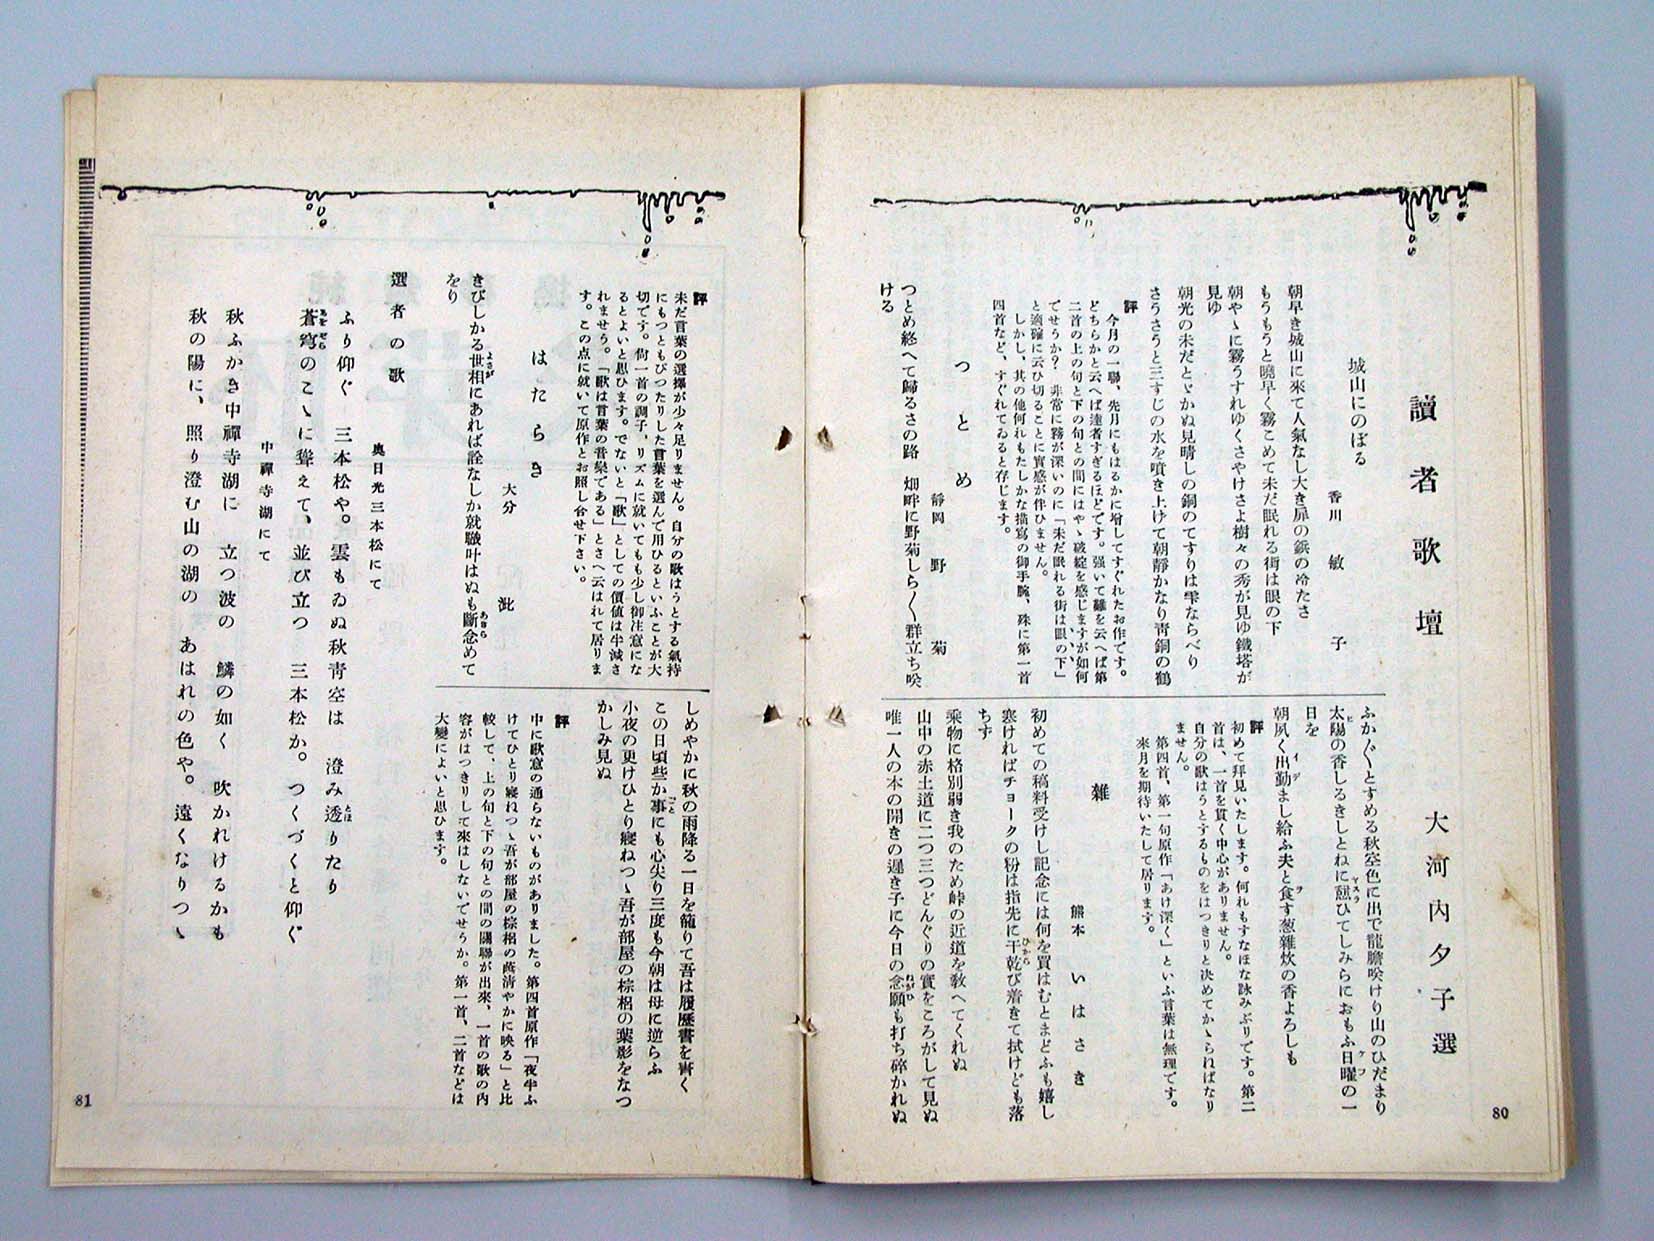 讀者歌壇
大河内夕子選
城山にのぼる
香川 敏子
朝早き城山に來て人氣なし大き扉の鋲の冷たさ
もうもうと曉早く霧こめて未だ眠れる街は眼の下
朝やゝに霧うすれゆくさやけさよ樹々の秀が見ゆ鐵塔が
見ゆ
朝光の未だとゞかぬ見晴しの銅のてすりは雫ならべり
さうさうと三すじの水を噴き上げて朝靜かなり靑銅の鶴
評
今月の一聯、先月にもはるかに增してすぐれたお作です。
どちらかと云へば達者すぎるほどです。强いて難を云へば第
二首の上の句と下の句との間にはやゝ破綻を感じますが如何
でせうか? 非常に霧が深いのに「未だ眠れる街は眼の下」
と適確に云ひ切ることに實感が伴ひません。
しかし、其の他何れもたしかな描寫の御手腕、殊に第一首
四首など、すぐれてゐると存じます。
つとめ
靜岡 野菊
つとめ終へて歸るさの路 畑畔に野菊しら〱群立ち咲
ける
ふか〲とすめる秋空色に出で龍膽咲けり山のひだまり
太陽の香しるきしとねに憩ひてしみらにおもふ日曜の一
ヒ
ヤスラ
ケフ
日を
朝夙く出勤まし給ふ夫と食す葱雜炊の香よろしも
イデ
ヲ
評
初めて拜見いたします。何れもすなほな詠みぶりです。第二
首は、一首を貫く中心がありません。
自分の歌はうとするものをはつきりと決めてかゝらればなり
ません。
第四首、第一句原作「あけ深く」といふ言葉は無理です。
來月を期待いたして居ります。
雜
熊本 いはさき
初めての稿料受けし記念には何を買はむとまどふも嬉し
寒ければチョークの粉は指先に干乾び着きて拭けども落
ひから
ちず
乘物に格別弱き我のため峠の近道を敎へてくれぬ
山中の赤土道に二つ三つどんぐりの實をころがして見ぬ
唯一人の本の開きの遲き子に今日の念願も打ち碎かれぬ
ねがひ
80
評
未だ言葉の選擇が少々足りません。自分の歌はうとする氣持
にもつともぴつたりした言葉を選んで用ひるといふことが大
切です。尙一首の調子、リズムに就いても少し御注意にな
るとよいと思ひます。でないと「歌」としての價値は半減さ
れませう。「歌は言葉の音樂である」とさへ云はれて居りま
す。この点に就いて原作とお照し合せ下さい。
はたらき
大分 沘
きびしかる世相にあれば詮なしか就職叶はぬも斷念めて
よさが
あきら
をり
しめやかに秋の雨降る一日を籠りて吾は履歷書を書く
この日頃些か事にも心尖り三度も今朝は母に逆らふ
ごと
小夜の更けひとり寢ねつゝ吾が部屋の棕梠の葉影をなつ
かしみ見ぬ
評
中に歌意の通らないものがありました。第四首原作「夜半ふ
けてひとり寢ねつゝ吾が部屋の棕梠の蔭淸やかに映る」と比
較して、上の句と下の句との間の關聯が出來、一首の歌の內
容がはつきりして來はしないでせうか。第一首、二首などは
大變によいと思ひます。
選者の歌
奧日光三本松にて
ふり仰ぐ 三本松や。雲もゐぬ秋靑空は 澄み透りたり
とほ
蒼穹のこゝに聳えて、並び立つ 三本松か。つくづくと仰ぐ
あをぞら
中禪寺湖にて
秋ふかき中禪寺湖に 立つ波の 鱗の如く 吹かれけるかも
秋の陽に、照り澄む山の湖の あはれの色や。遠くなりつゝ
81